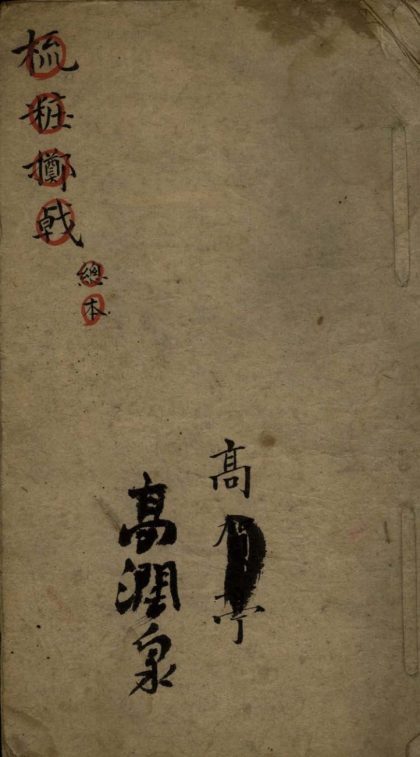 梳粧擲戟
總本
高亭
高潤泉